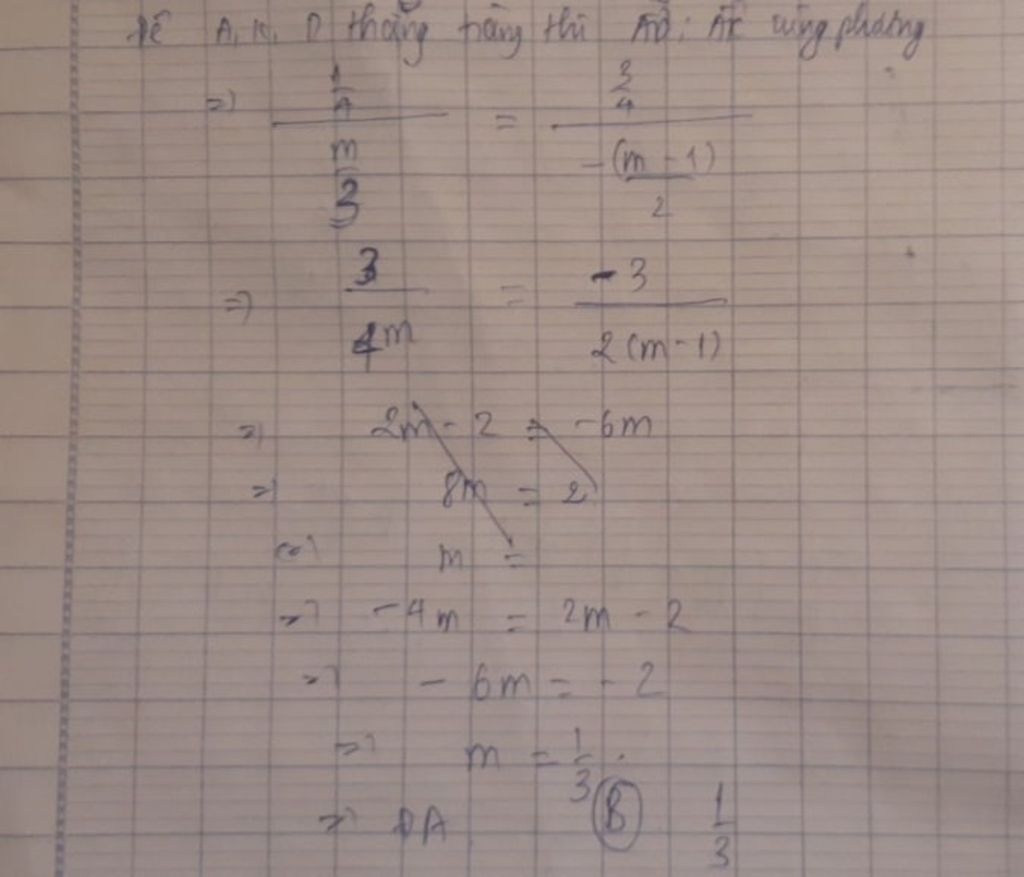 Để A, K, D thẳng hàng thì AD; AK cùng phương
=> (1/4)/(m/3) = (3/4)/(-(m-1)/2)
=> 3/4m = -3/2(m-1)
=> 2m - 2 = -6m
=> 8m = 2
<=> m =
=> -4m = 2m - 2
=> -6m = -2
=> m = 1/3.
=> ĐA B 1/3